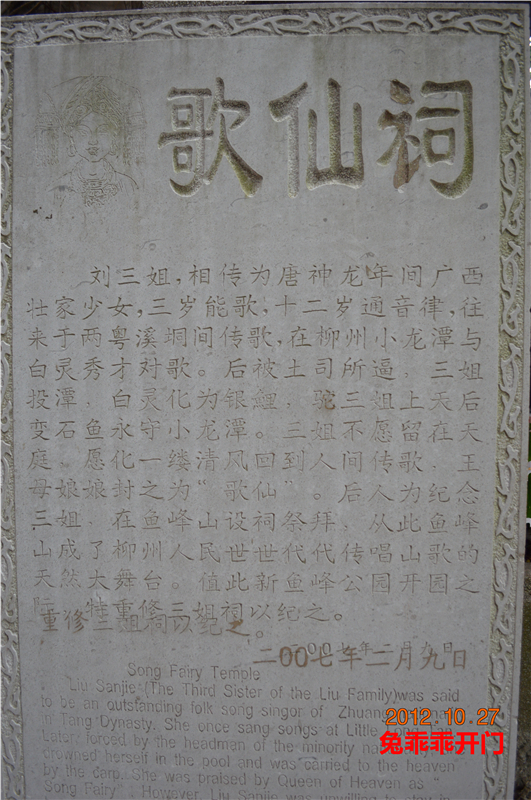 歌仙祠
刘三姐,相传为唐神龙年间广西
壮家少女,三岁能歌,十二岁通音律,往
来于两粤溪垌间传歌,在柳州小龙潭与
白灵秀才对歌。后被土司所逼,三姐
投潭,白灵化为银鲤,驼三姐上天后
变石鱼永守小龙潭。三姐不愿留在天
庭。愿化一缕清风回到人间传歌,王
母娘娘封之为“歌仙”。后人为纪念
三姐,在鱼峰山设祠祭拜,从此鱼峰
山成了柳州人民世世代代传唱山歌的
天然大舞台。值此新鱼峰公园开园之
重修三姐祠以纪之。
二00七年二月九日
Song Fairy Temple
Liu Sanjie (The Third Sister of the Liu Family)was said
to be an outstanding folk song singor of Zhuang
in Tang Dynasty. She once sang songs at Little
forced by the headman of the minority
herself in the pool and was carried to the heaven
by the carp. She was praised by Queen of Heaven as
Song Fairy. However, Liu Sanjie was
2012.10.27
兔乖乖开门